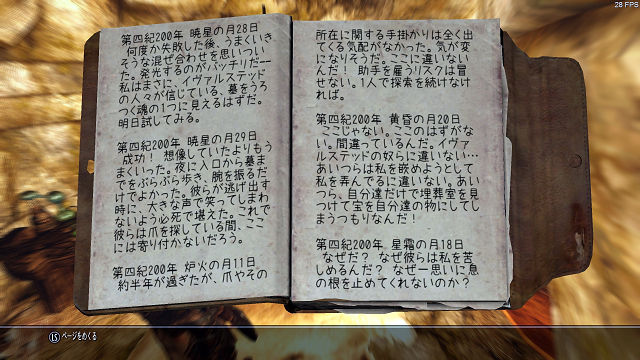 28 FPS
第四紀200年 暁星の月28日
何度か失敗した後、うまくいき
そうな混ぜ合わせを思いつい
た。発光するのがバッチリだ──
私はまさに、イヴァルステッド
の人々が信じている、墓をうろ
つく魂の1つに見えるはずだ。
明日試してみる。
第四紀200年 暁星の月29日
成功！ 想像していたよりもう
まくいった。夜に入口から墓ま
でをぶらぶら歩き、腕を振るだ
けでよかった。彼らが逃げ出す
時に、大きな声で笑ってしまわ
ないよう必死で堪えた。これで
彼らは爪を探している間、ここ
には寄り付かないだろう。
第四紀200年 炉火の月11日
約半年が過ぎたが、爪やその
所在に関する手掛かりは全く出
てくる気配がなかった。気が変
になりそうだ。ここに違いない
んだ！ 助手を雇うリスクは冒
せない。1人で探索を続けなけ
れば。
第四紀200年 黄昏の月20日
ここじゃない。ここのはずがな
い。間違っているんだ。イヴァ
ルステッドの奴らに違いない…
あいつらは私を嵌めようとして
私を弄んでるに違いない。あい
つら、自分達だけで埋葬室を見
つけて宝を自分達の物にしてし
まうつもりなんだ！
第四紀200年 星霜の月18日
なぜだ？ なぜ彼らは私を苦
しめるんだ？ なぜ一思いに息
の根を止めてくれないのか？
LS ページをめくる